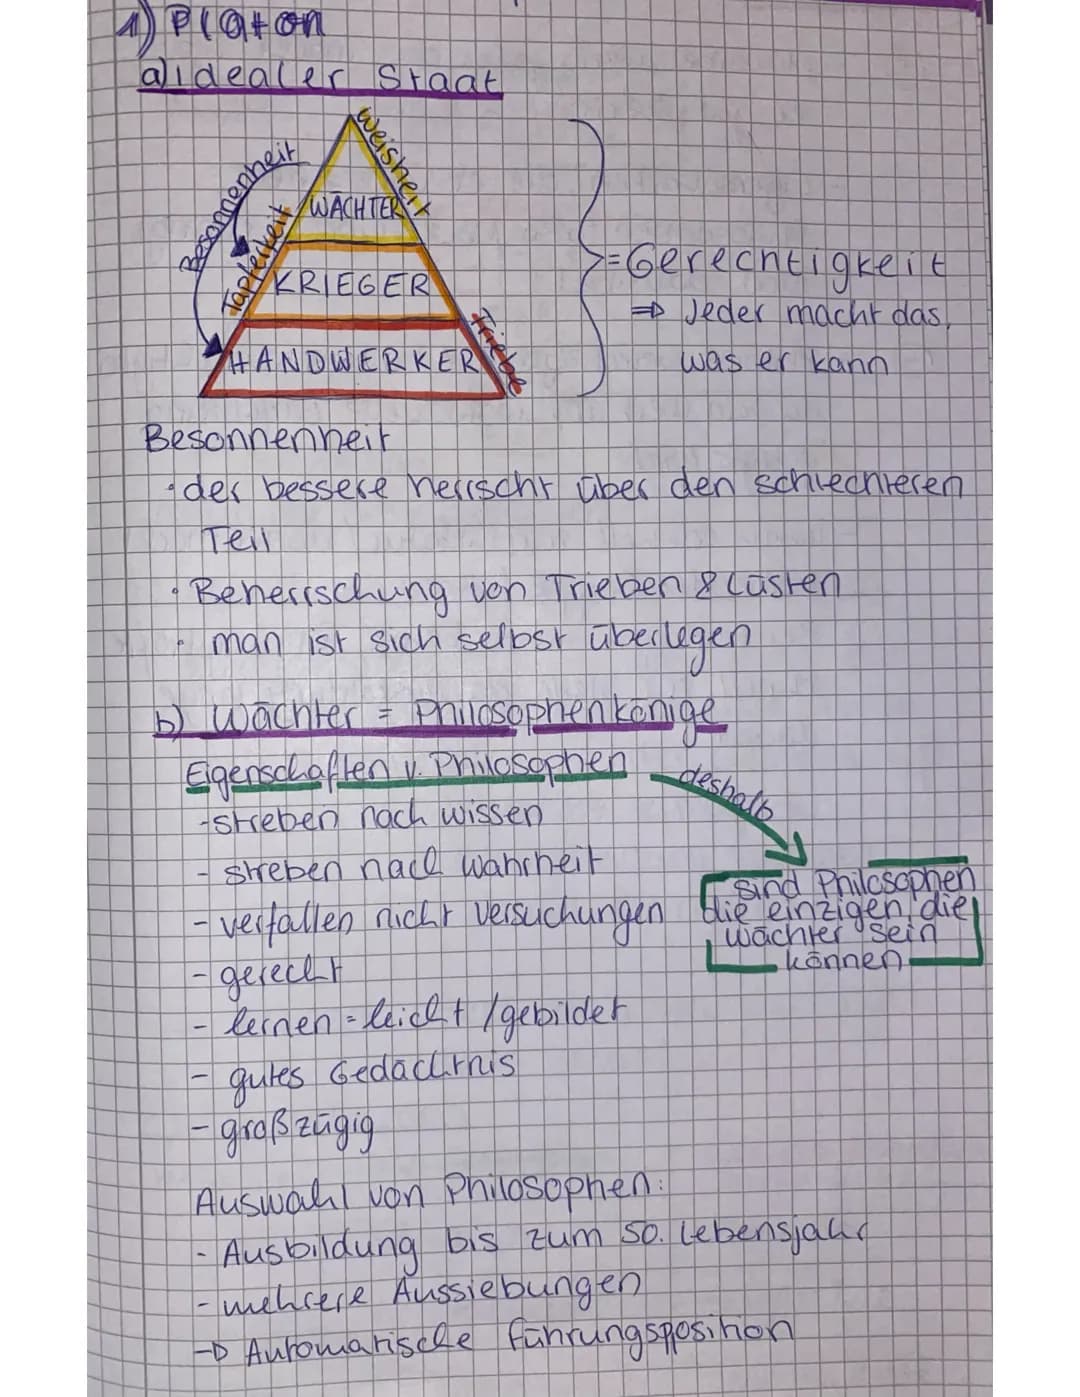 1) Platon
a) idealer Staat
Weisheit
Besonnenheit
WÄCHTER
Tapferkeit
KRIEGER
= Gerechtigkeit
⇒ Jeder macht das,
was er kann
Triebe
HANDWERKER
Besonnenheit
· der bessere herrscht über den schlechteren
Teil
· Beherrschung von Trieben & Lüsten
· man ist sich selbst überlegen
b) Wächter = Philosophenkönige
Eigenschaften v. Philosophen
deshalb
- streben nach wissen
- streben nach wahrheit
- verfallen nicht versuchungen
- gerecht
- lernen = leicht / gebildet
- gutes Gedächtnis
- großzügig
sind Philosophen
die einzigen, die
wächter sein
können
Auswahl von Philosophen:
- Ausbildung bis zum 50. Lebensjahr
- mehrere Aussiebungen
→ Automatische Führungsposition